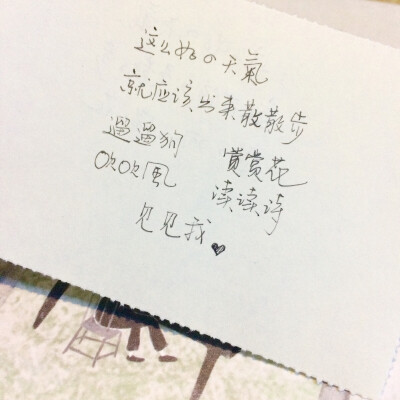 这么好の天氣
就应该出来散散步
遛遛狗 赏赏花
吹吹風 读读诗
见见我♥